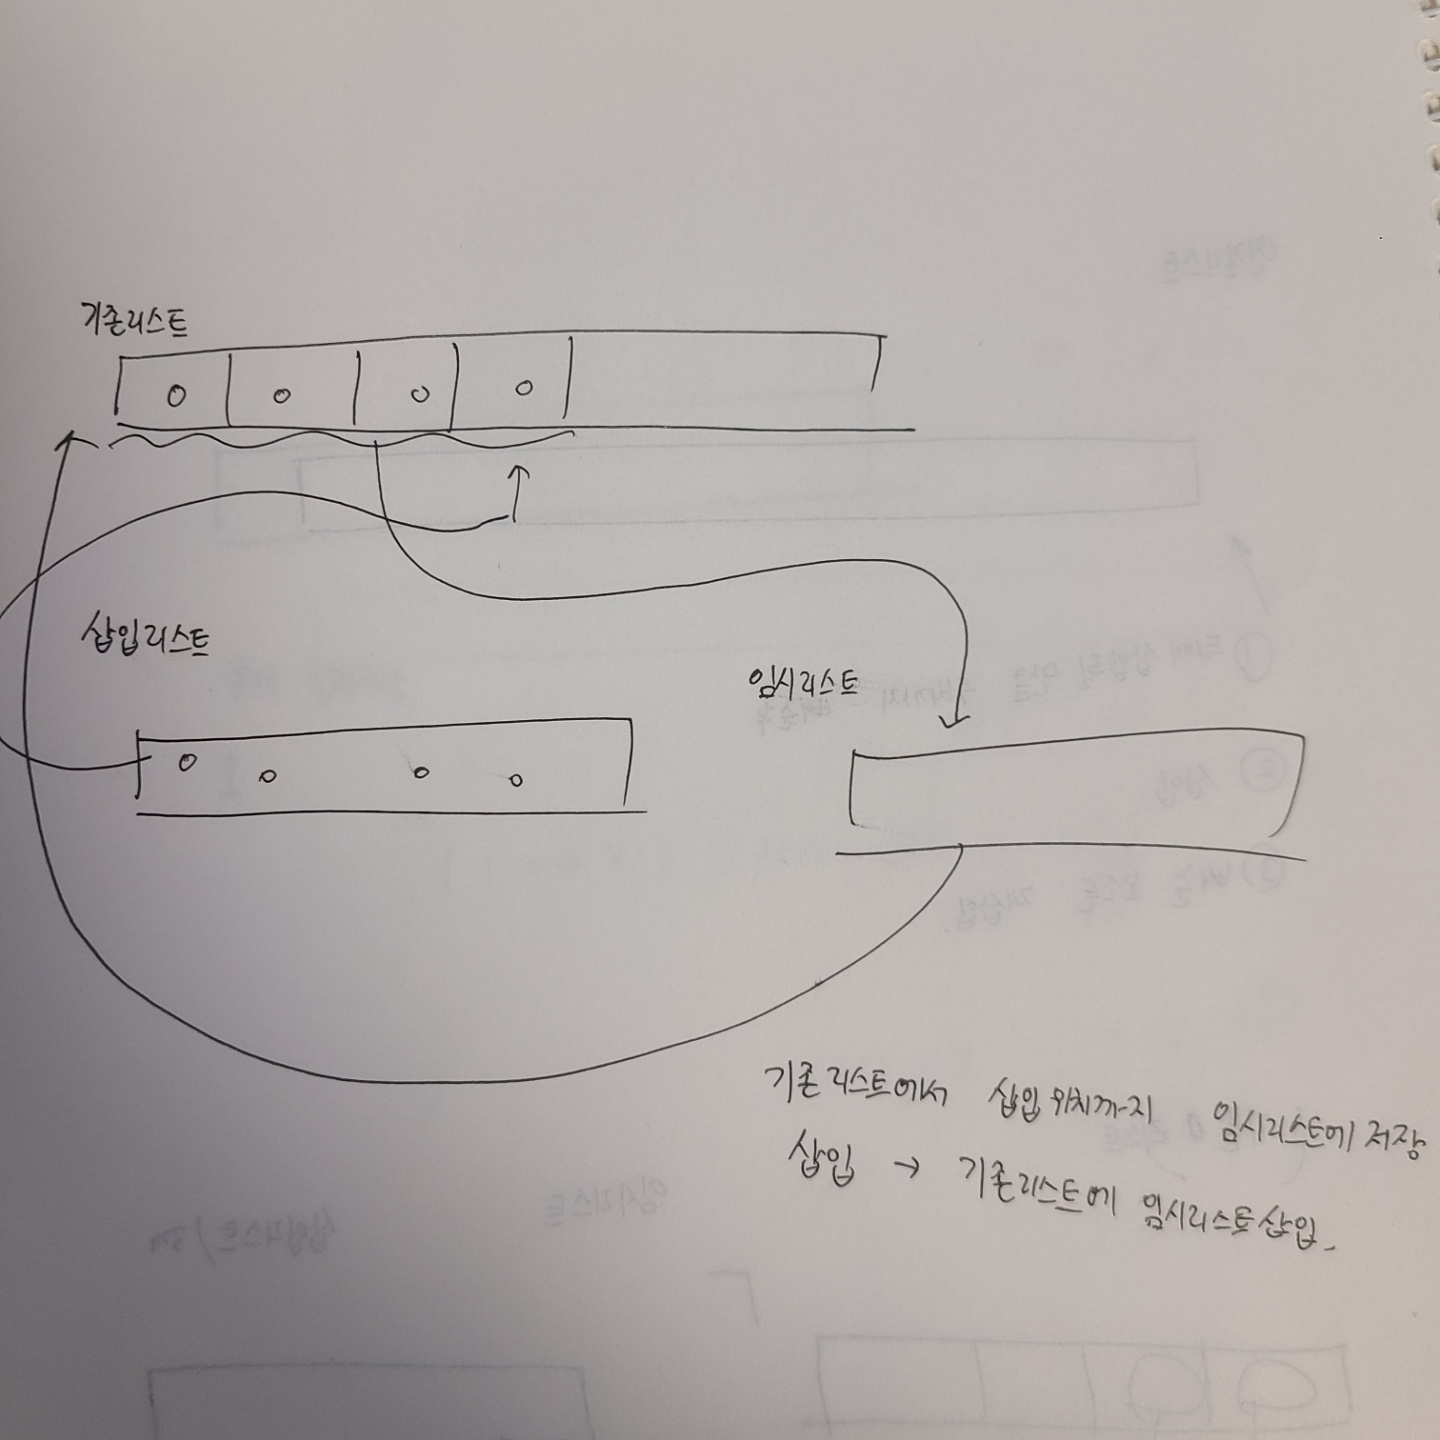 기존리스트
삽입리스트
임시리스트
기존리스트에서 삽입위치까지 임시리스트에 저장
삽입 → 기존리스트에 임시리스트삽입.